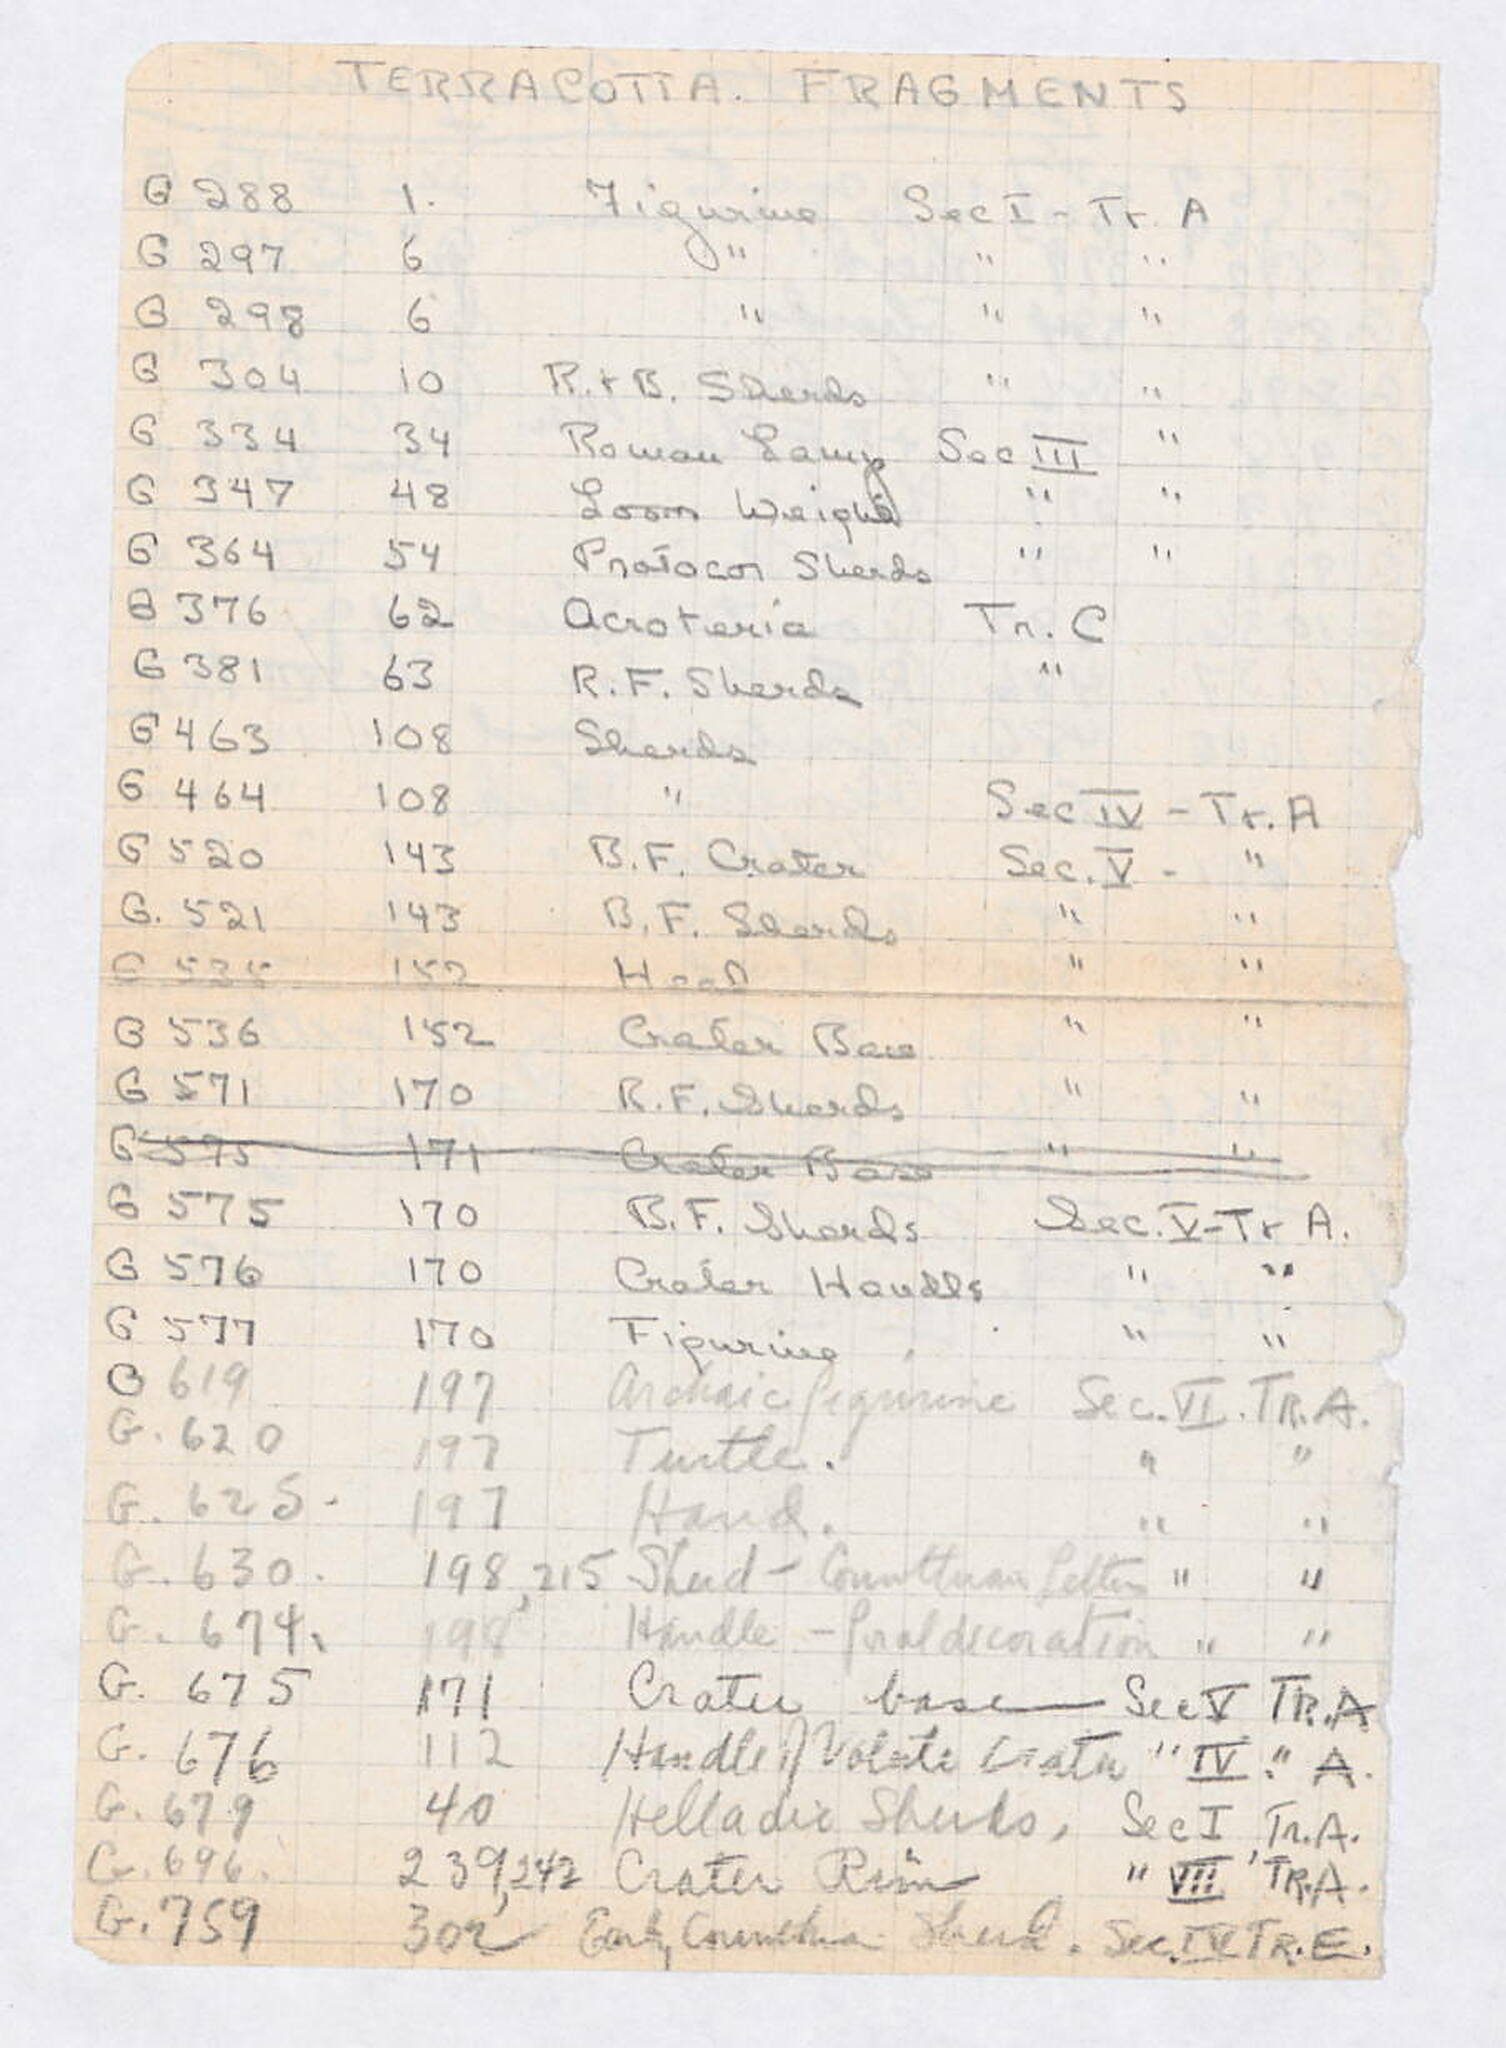 TERRACOTTA. FRAGMENTS
G 288 1. Figurine Sec I - Tr. A
G 297 6 " " "
G 298 6 " " "
G 304 10 R. + B. Sherds " "
G 334 34 Roman Lamp Sec III "
G 347 48 Loom Weight " "
G 364 54 Protocor Sherds " "
G 376 62 Acroteria Tr. C
G 381 63 R.F. Sherds "
G 463 108 Sherds
G 464 108 " Sec IV - Tr. A
G 520 143 B.F. Crater Sec. V - "
G. 521 143 B.F. Sherds " "
G 535 152 Head " "
G 536 152 Crater Base " "
G 571 170 R.F. Sherds " "
G 575 171 Crater Base " "
G 575 170 B.F. Sherds Sec. V - Tr A.
G 576 170 Crater Handle " "
G 577 170 Figurine " "
G 619 197 Archaic figurine Sec. VI. TR. A.
G. 620 197 Turtle. " "
G. 625 - 197 Hand. " "
G. 630. 198, 215 Sherd - Corinthian Letters " "
G. 674. 198 Handle - decoration " "
G. 675 171 Crater base Sec V TR. A
G. 676 112 Handle of Volute Crater " IV. " A.
G. 679 40 Helladic Sherds, Sec I Tr. A.
G. 696. 239, 242 Crater Rim " VII TR. A.
G. 759 302 Early Corinthian Sherd. Sec. IV TR. E.